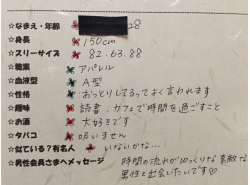 ☆なまえ・年齢 28
☆身長 150cm
☆スリーサイズ 82.63.88
☆職業 アパレル
☆血液型 A型
☆性格 おっとりしてるってよく言われます
☆趣味 読書、カフェで時間を過ごすこと
☆お酒 大好きです
☆タバコ 吸いません
☆似ている?有名人 いないかな…
☆男性会員さまへメッセージ 時間の流れがゆっくりな素敵な
男性と出会いたいです♡